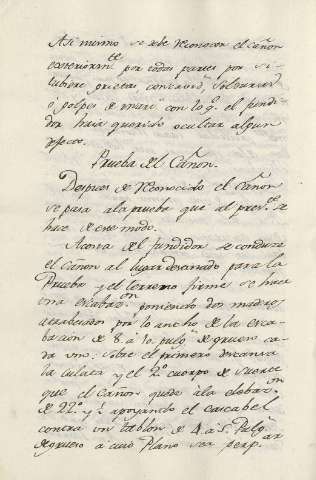 Asi mismo se debe reconocer el cañon
exteriorm.te por todas partes por si
tubiere grietas,
ó golpes de con lo q.e el fundi-
dor haia querido ocultar algun
defecto.
Prueba del Cañon.
Despues de reconocido el cañon
se pasa ala prueba que al pres.te se
hace de este modo.
Acosta del fundidor se conduce
el cañon al lugar destinado para la
Prueba y el terreno firme se hace
una escabaz.on poniendo dos maderos
atrabesados por lo ancho de la esca-
bacion de 8 á 10 pulg.s de grueso ca-
da uno: sobre el primero descansa
la culata y el 2.o cuerpo de suerte
que el cañon quede ála elebaz.on
de 22.o y ½ apoyando el cascabel
contra un tablon de 4 a 5 Pulg.s
de grueso a cuio Plano sea perp.ar